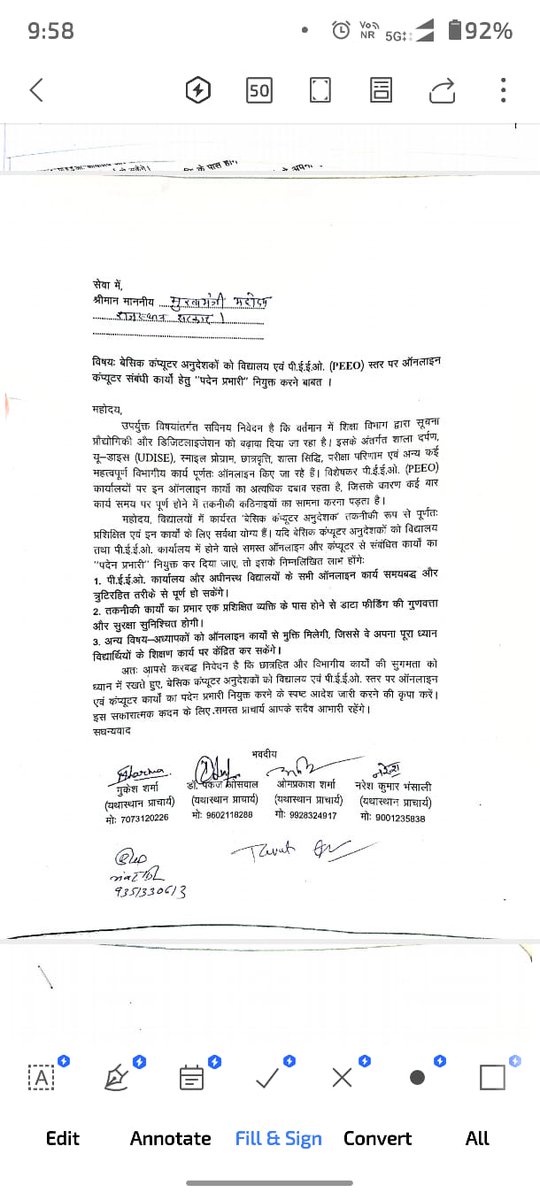 9:58
Vo
NR
5G
92%
50
सेवा में,
श्रीमान माननीय मुख्यमंत्री महोदय
राजस्थान सरकार।
विषय: बेसिक कंप्यूटर अनुदेशकों को विद्यालय एवं पी.ई.ई.ओ. (PEEO) स्तर पर ऑनलाइन
कंप्यूटर संबंधी कार्यों हेतु "पदेन प्रभारी" नियुक्त करने बाबत ।
महोदय,
उपर्युक्त विषयांतर्गत सविनय निवेदन है कि वर्तमान में शिक्षा विभाग द्वारा सूचना
प्रौद्योगिकी और डिजिटलाइजेशन को बढ़ावा दिया जा रहा है। इसके अंतर्गत शाला दर्पण,
यू-डाइस (UDISE), स्माइल प्रोग्राम, छात्रवृत्ति, शाला सिद्धि, परीक्षा परिणाम एवं अन्य कई
महत्वपूर्ण विभागीय कार्य पूर्णतः ऑनलाइन किए जा रहे हैं। विशेषकर पी.ई.ई.ओ. (PEEO)
कार्यालयों पर इन ऑनलाइन कार्यों का अत्यधिक दबाव रहता है, जिसके कारण कई बार
कार्य समय पर पूर्ण होने में तकनीकी कठिनाइयों का सामना करना पड़ता है।
महोदय, विद्यालयों में कार्यरत 'बेसिक कंप्यूटर अनुदेशक' तकनीकी रूप से पूर्णतः
प्रशिक्षित एवं इन कार्यों के लिए सर्वथा योग्य हैं। यदि बेसिक कंप्यूटर अनुदेशकों को विद्यालय
तथा पी.ई.ई.ओ. कार्यालय में होने वाले समस्त ऑनलाइन और कंप्यूटर से संबंधित कार्यों का
"पदेन प्रभारी" नियुक्त कर दिया जाए, तो इसके निम्नलिखित लाभ होंगे:
1. पी.ई.ई.ओ. कार्यालय और अधीनस्थ विद्यालयों के सभी ऑनलाइन कार्य समयबद्ध और
त्रुटिरहित तरीके से पूर्ण हो सकेंगे।
2. तकनीकी कार्यों का प्रभार एक प्रशिक्षित व्यक्ति के पास होने से डाटा फीडिंग की गुणवत्ता
और सुरक्षा सुनिश्चित होगी।
3. अन्य विषय-अध्यापकों को ऑनलाइन कार्यों से मुक्ति मिलेगी, जिससे वे अपना पूरा ध्यान
विद्यार्थियों के शिक्षण कार्य पर केंद्रित कर सकेंगे।
अतः आपसे करबद्ध निवेदन है कि छात्रहित और विभागीय कार्यों की सुगमता को
ध्यान में रखते हुए, बेसिक कंप्यूटर अनुदेशकों को विद्यालय एवं पी.ई.ई.ओ. स्तर पर ऑनलाइन
एवं कंप्यूटर कार्यों का पदेन प्रभारी नियुक्त करने के स्पष्ट आदेश जारी करने की कृपा करें।
इस सकारात्मक कदम के लिए समस्त प्राचार्य आपके सदैव आभारी रहेंगे।
सधन्यवाद
भवदीय
Sharma
नरेश
मुकेश शर्मा
डॉ. पंकज ओसवाल
ओमप्रकाश शर्मा
नरेश कुमार भंसाली
(यथास्थान प्राचार्य)
(यथास्थान प्राचार्य)
(यथास्थान प्राचार्य)
(यथास्थान प्राचार्य)
मो: 7073120226
मो: 9602118288
मो: 9928324917
मो: 9001235838
9351330613
A
Edit
Annotate
Fill & Sign
Convert
All